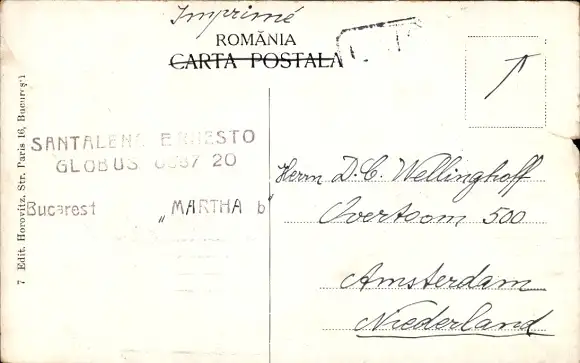 Imprimé
ROMÂNIA
CARTA POSTALA
7 Edit. Horovitz, Str. Paris 16, București
SANTALENE ERNESTO
GLOBUS 20
Bucarest „MARTHA b"
Herrn D.C. Wellinghoff
Overtoom 500
Amsterdam
Niederland